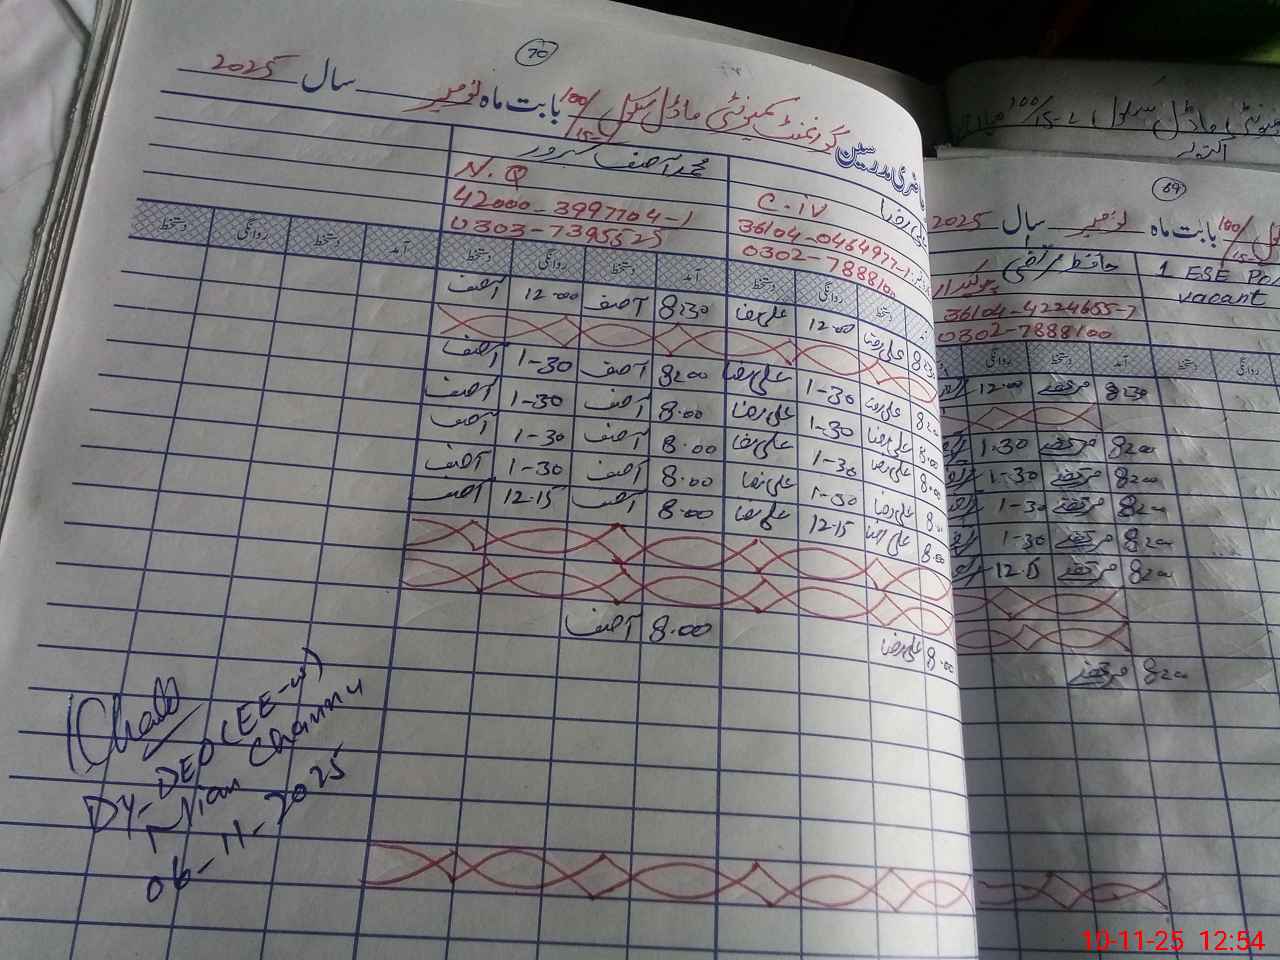 70
حاضری مدرسین گورنمنٹ کمیونٹی ماڈل سکول 100/15-L بابت ماہ نومبر سال 2025
علی رضا محمد آصف سرور
C-IV N.Q
36104-0464977-1 42000-3997704-1
0302-7888100 0303-7395525
آمد دستخط روانگی دستخط آمد دستخط روانگی دستخط آمد دستخط روانگی دستخط
8:30 علی رضا 12:00 علی رضا 8:30 آصف 12:00 آصف
8:00 علی رضا 1-30 علی رضا 8:00 آصف 1-30 آصف
8:00 علی رضا 1-30 علی رضا 8.00 آصف 1-30 آصف
8.00 علی رضا 1-30 علی رضا 8.00 آصف 1-30 آصف
8.00 علی رضا 1-30 علی رضا 8.00 آصف 1-30 آصف
8.00 علی رضا 12.15 علی رضا 8.00 آصف 12.15 آصف
8.00 علی رضا 8.00 آصف
DY-DEO (EE-W)
Mian Channu
06-11-2025
100/15-L
اکتوبر
69
100/15-L بابت ماہ نومبر سال 2025
1 ESE
vacant
حافظ مرتضیٰ چوکیدار
36104-4224655-7
0302-7888100
آمد دستخط روانگی دستخط آمد دستخط روانگی
8:30 مرتضیٰ 12:00
8:00 مرتضیٰ 1.30
8:00 مرتضیٰ 1-30
8:00 مرتضیٰ 1-30
8:00 مرتضیٰ 1-30
8:00 مرتضیٰ 12.15
8:00 مرتضیٰ
10-11-25 12:54